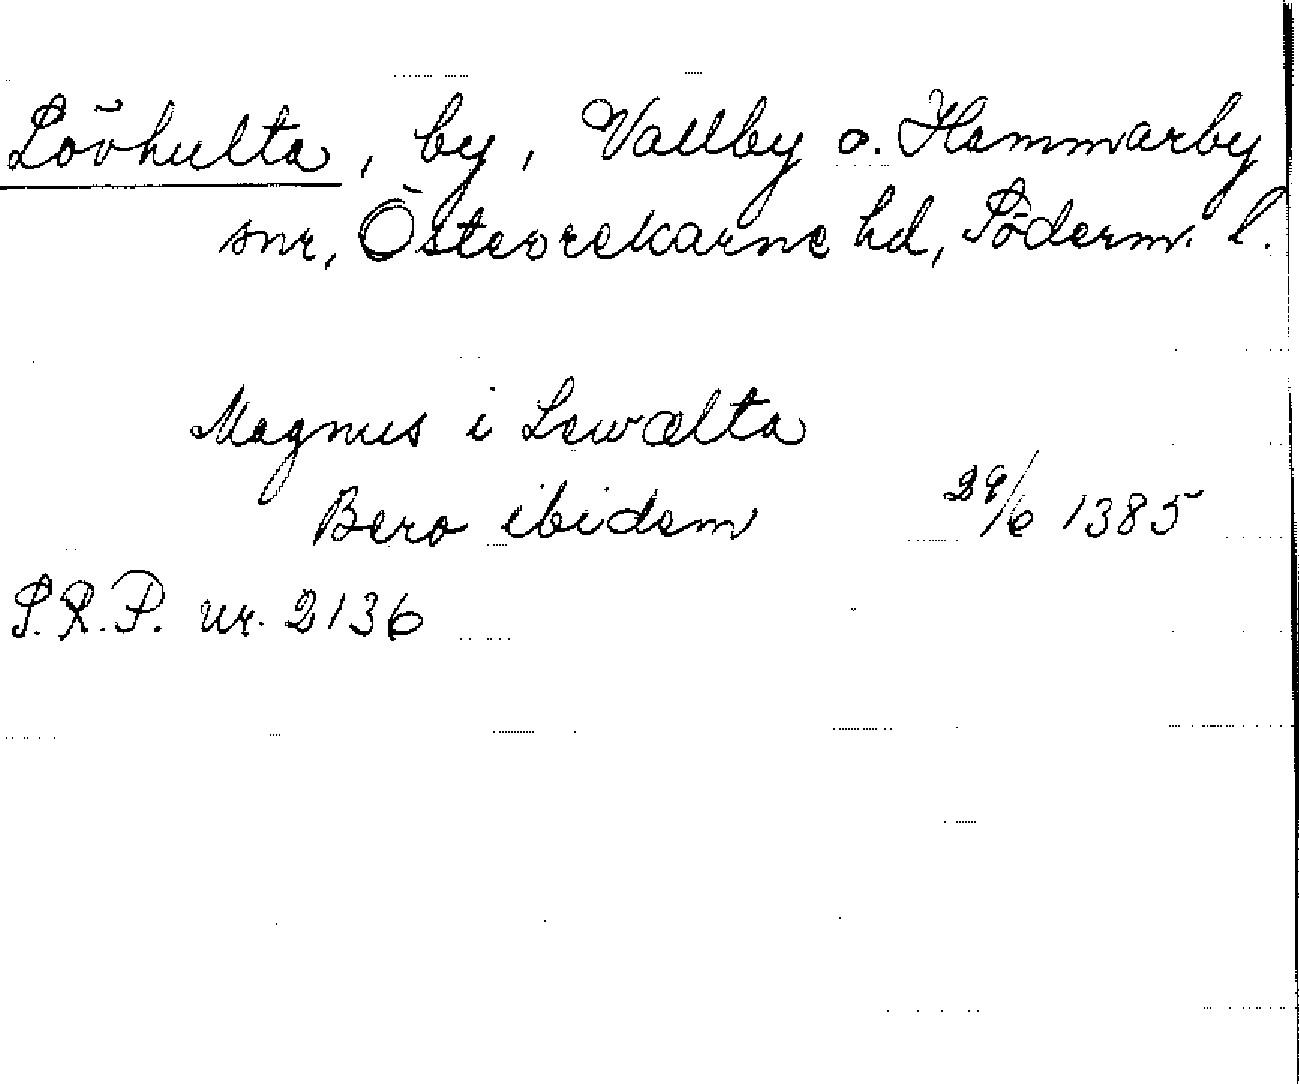 Lövhulta, by, Vallby o. Hammarby
snr, Österrekarne hd, Söderm. l.
Magnus i Lewælta
Bero ibidem 29/6 1385
S.R.P. nr. 2136